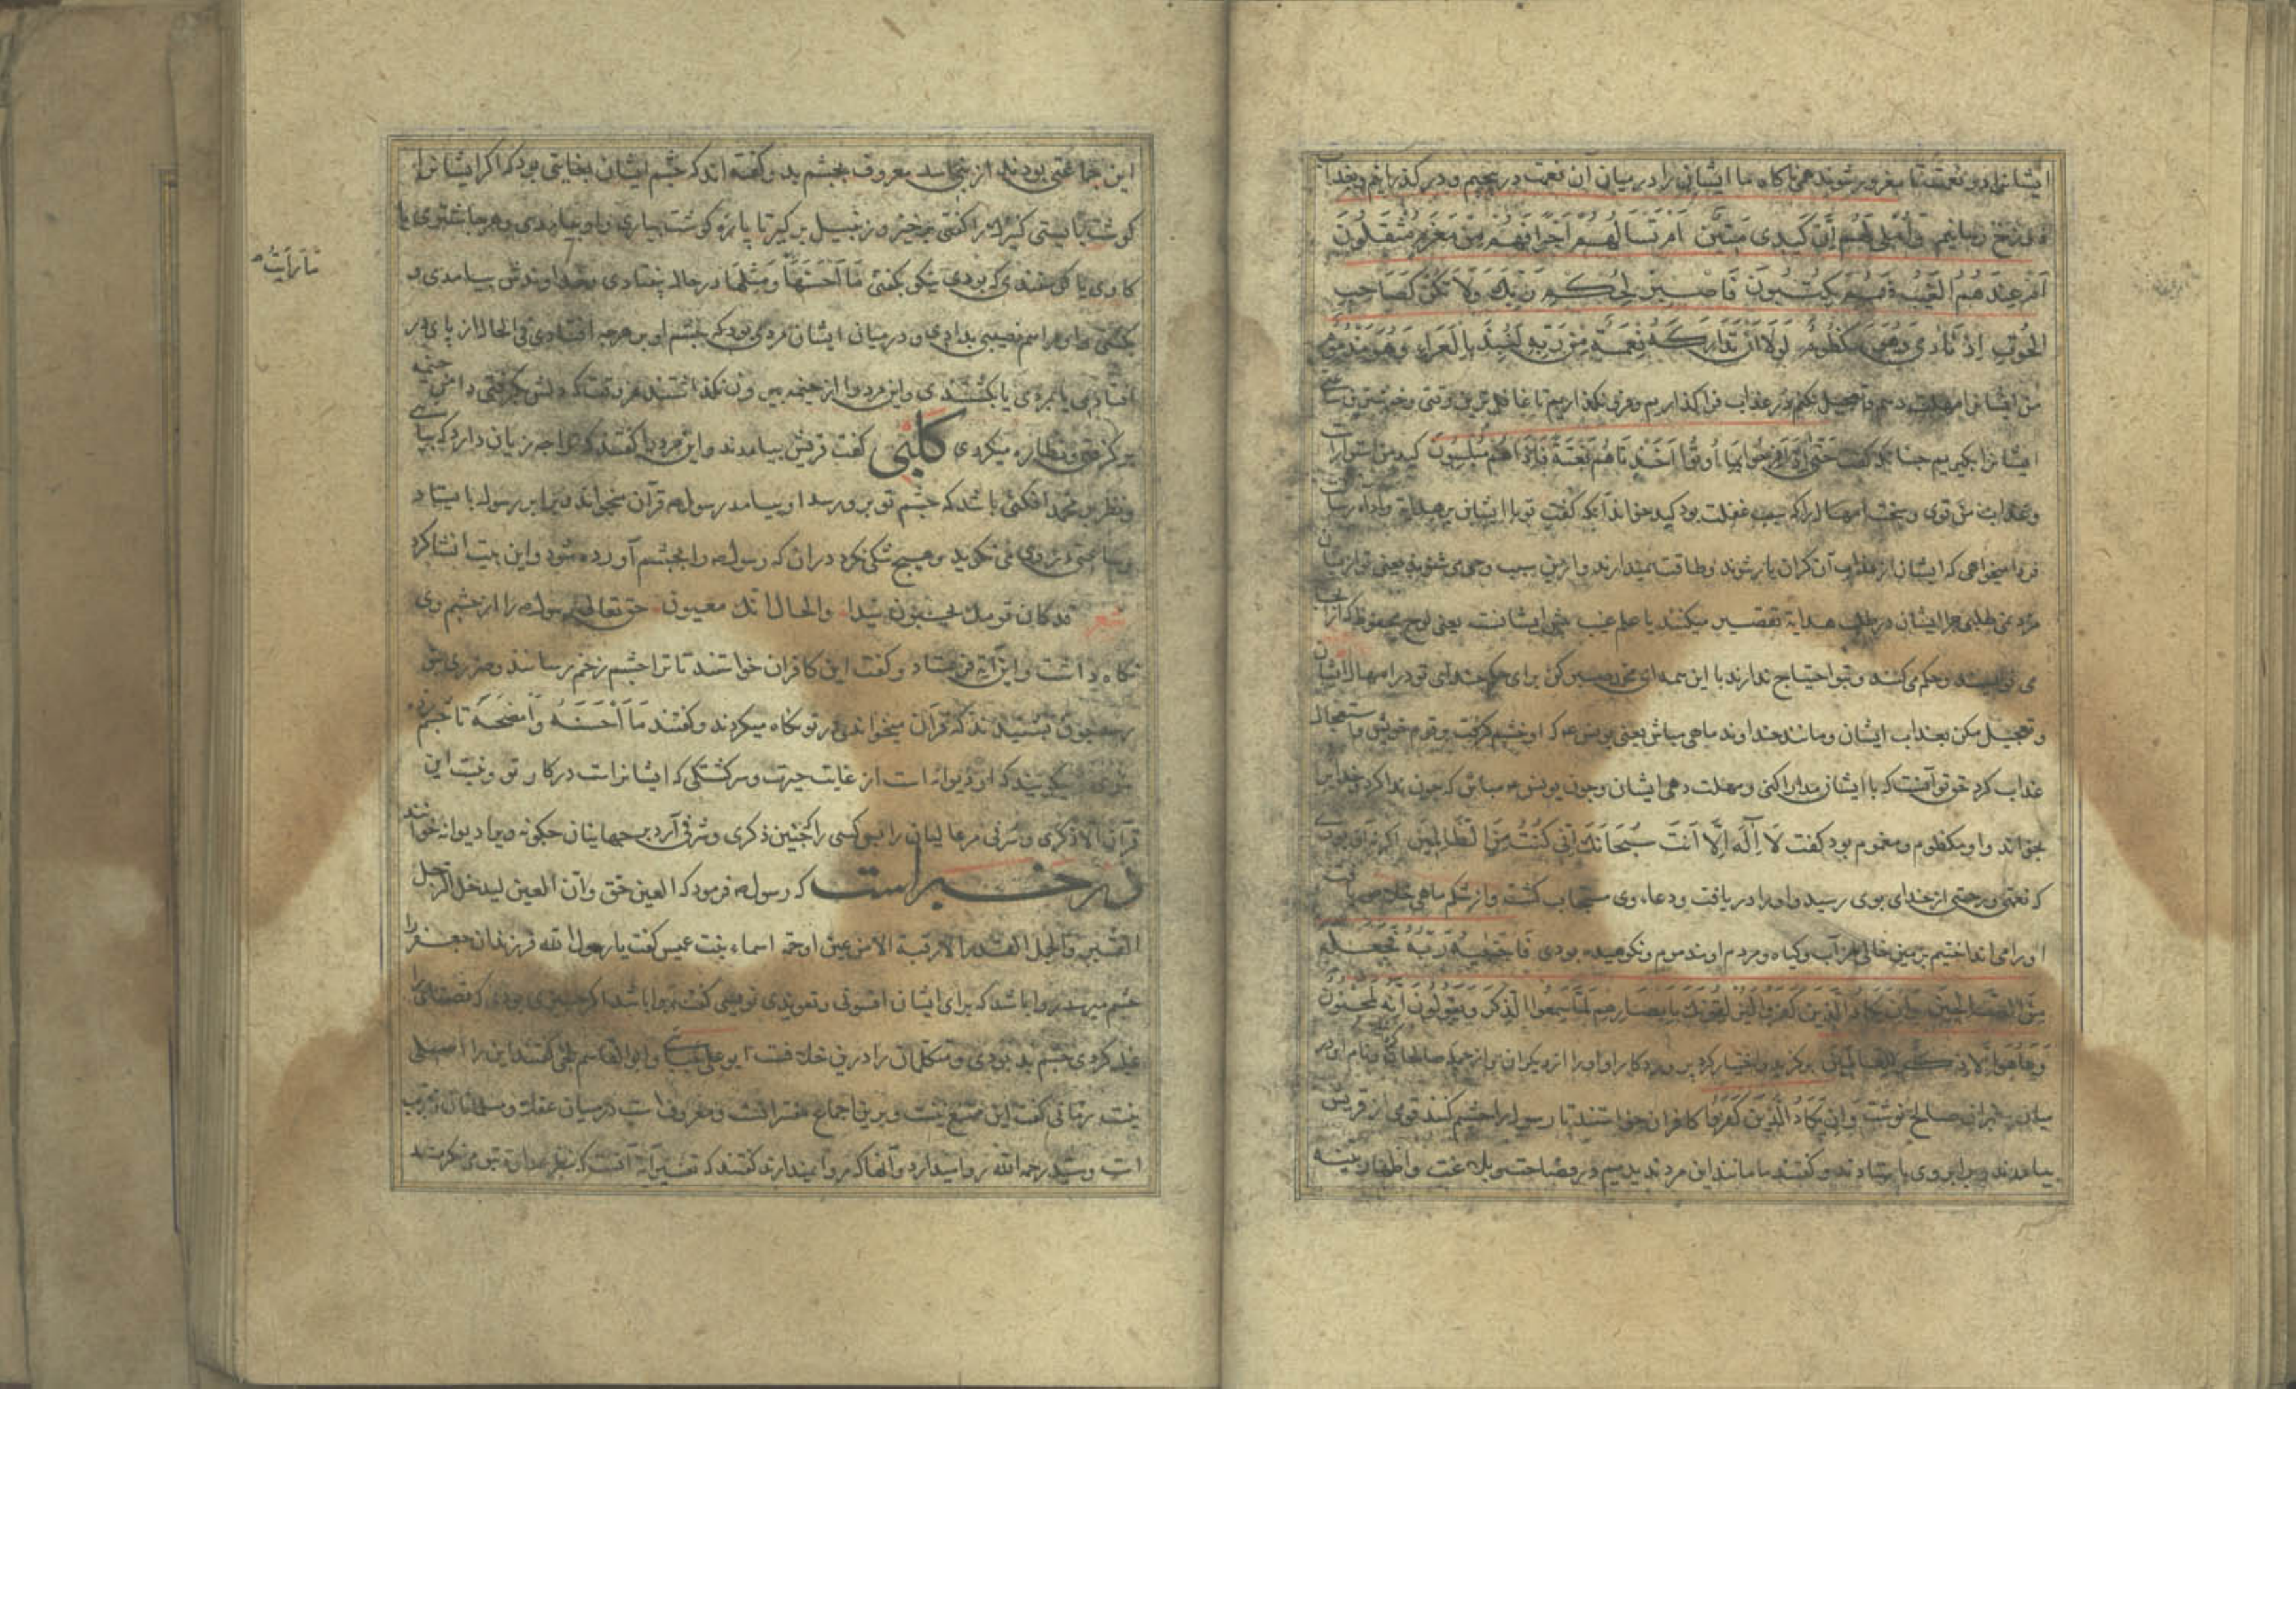 ایشانرا دو نعمت تا مغرور شوند همی ناکاه ما ایشان را در میان آن نعمت در پیچیم و در کذرانیم و بعذاب
دوزخ رسانیم وَاُمْلِی لَهُمْ اِنَّ کَیْدِی مَتِینٌ اَمْ تَسْأَلُهُمْ اَجْرًا فَهُمْ مِنْ مَغْرَمٍ مُثْقَلُونَ
اَمْ عِنْدَهُمُ الْغَیْبُ فَهُمْ یَکْتُبُونَ فَاصْبِرْ لِحُکْمِ رَبِّكَ وَلَا تَکُنْ کَصَاحِبِ
الْحُوتِ اِذْ نَادَی وَهُوَ مَکْظُومٌ لَوْلَا اَنْ تَدَارَکَهُ نِعْمَةٌ مِنْ رَبِّهِ لَنُبِذَ بِالْعَرَاءِ وَهُوَ مَذْمُومٌ
من ایشانرا مهلت دهم و تعجیل نکنم و در عذاب فرا کذاریم و فرو نکذاریم تا غافل ترین وقتی
ایشانرا بکیریم چنانکه کفت حَتّٰی اِذَا فَرِحُوا بِمَا اُوتُوا اَخَذْنَاهُمْ بَغْتَةً فَاِذَا هُمْ مُبْلِسُونَ کید من استوارست
و عذاب من قوی و سخت امهال را که سبب غفلت بود کید خواند آنکه کفت تو با ایشان بر هدایة و اداء رسالت
مزد میخواهی که ایشان از آن کران بار شوند و طاقت نمیدارند و از این سبب وحی می شنوند یعنی تو از میان
مزد نمی طلبی چرا ایشان در طلب هدایة تقصیر میکنند یا علم غیب پیش ایشانست یعنی لوح محفوظ که از آنجا
می نویسند و حکم می کنند و بتو احتیاج ندارند با این همه ای محمد صبر کن برای حکم خدای تو در امهال ایشان
و تعجیل مکن بعذاب ایشان و مانند خداوند ماهی مباش یعنی یونس که او خشم کرفت بر قوم خویش و استعجال
عذاب کرد حق تو آنست که با ایشان مدارا کنی و مهلت دهی ایشان و چون یونس مباش که چون ندا کرد و خدایرا
بخواند و او مکظوم و مغموم بود کفت لَا اِلٰهَ اِلَّا اَنْتَ سُبْحَانَكَ اِنِّی کُنْتُ مِنَ الظَّالِمِینَ اکر نه آن بودی
که نعمتی و رحمتی از خدای بوی رسید و او را دریافت و دعاء وی مستجاب کشت و از شکم ماهی خلاص یافت
او را می انداختیم بزمین خالی از آب و کیاه و مردم او مذموم و نکوهیده بودی فَاجْتَبٰیهُ رَبُّهُ فَجَعَلَهُ
مِنَ الصَّالِحِینَ وَاِنْ یَکَادُ الَّذِینَ کَفَرُوا لَیُزْلِقُونَكَ بِاَبْصَارِهِمْ لَمَّا سَمِعُوا الذِّکْرَ وَیَقُولُونَ اِنَّهُ لَمَجْنُونٌ
وَمَا هُوَ اِلَّا ذِکْرٌ لِلْعَالَمِینَ برکزید و اختیار کرد پروردکار او او را از دیکران و از جمله صالحان کرد و نام او در
میان پیغمبران صالح نوشت وَاِنْ یَکَادُ الَّذِینَ کَفَرُوا کافران خواستند تا رسول را چشم کنند قومی از قریش
بیامدند و برابر وی بایستادند و کفتند ما مانند این مرد ندیدیم در فصاحت و بلاغت و اظهار بینه
این جماعتی بودند از بنی اسد معروف بچشم بد و کفته اند که چشم ایشان بغایتی بود که اکر ایشانرا
کوشت بایستی کنیزك را کفتی برخیز و زنبیل بر کیر تا پاره کوشت بیاری و او بیامدی و هر جا شتری یا
کاوی یا کوسفندی که بودی نیکو بکفتی مَا اَحْسَنَهَا وَمِثْلَهَا در حال بیفتادی و خداوندش بیامدی و
بکشتی و او را هم نصیبی بدادی و در میان ایشان مردی بود که چشم او بر هر چه افتادی فی الحال از پای در
افتادی یا بمردی یا بکشتندی و این مرد را از خیمه بیرون نکذاشتند هر وقت که دلش بکرفتی دامن خیمه
بر کرفتی و نظاره میکردی کلبی کفت قریش بیامدند و این مرد را کفتند که ترا چه زیان دارد که بیایی
و نظر بر محمد افکنی باشد که چشم تو برو رسد او بیامد رسول قرآن میخواند در برابر رسول بایستاد
و ساعتی در وی می نکرید و هیچ شکی نکرد در آن که رسول را بچشم آورده شود و این بیت انشا کرد
شعر قد کان قومك یحسبون سیدا والحال انك معیون حق تعالی رسول را از چشم وی
نکاه داشت و این آیة فرستاد و کفت این کافران خواستند تا ترا چشم زخم رسانند
چون بشنیدند که قرآن میخواندی در تو نکاه میکردند و کفتند مَا اَحْسَنَهُ وَاَفْصَحَهُ تا چشم
میکویند که او دیوانه است از غایت حیرت و سرکشتکی که ایشانراست در کار تو و نیست این
قرآن الا ذکری و شرفی مر عالمیان را پس کسی را که چنین ذکری و شرفی آرد بر جهانیان چکونه ویرا دیوانه خوانند
در خبر است که رسول فرمود که العین حق وان العین لیدخل الرجل
القبر والجمل القدر الا رقیة الا من عین او حمة اسماء بنت عمیس کفت یا رسول الله فرزندان جعفر را
چشم میرسد روا باشد که برای ایشان افسونی و تعویذی نویسی کفت روا باشد اکر چیزی بودی که قضا را
غلبه کردی چشم بد بودی و متکلمان را درین خلافست ابو علی و ابو القاسم بلخی کفتند این را اصلی
نیست رمانی کفت این ممتنع نیست و برین اجماع مفسرانست و معروف است در میان عقلا و مسلمانان و عرب
است و سید رحمه الله روا میدارد و آنها که روا نمیدارند کفتند که تفسیر آیة آنست که بنظر عداوة بتو می نکریستند
ما رایت